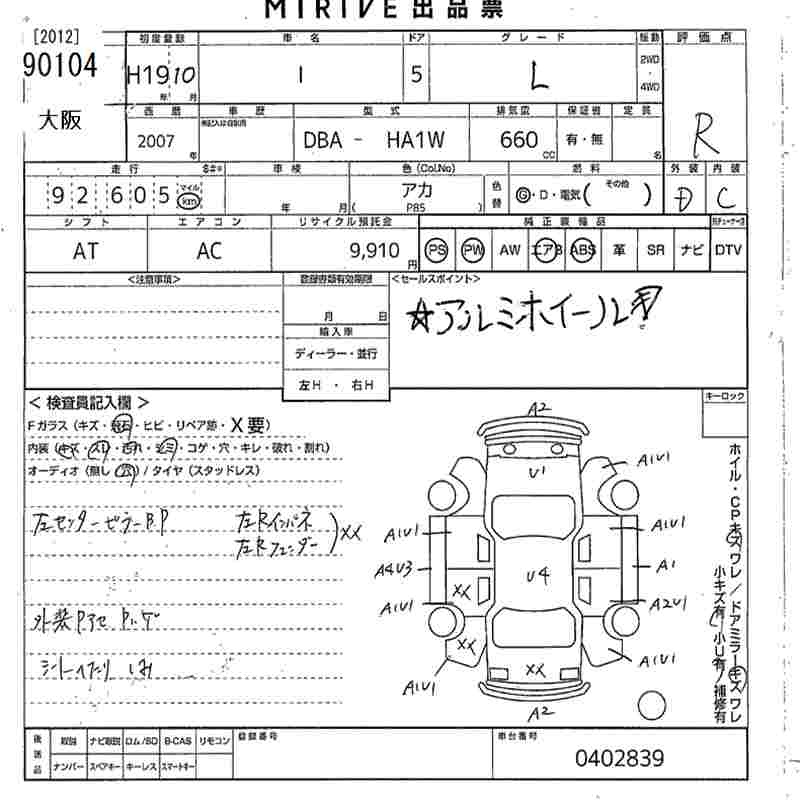 MIRIVE出品票
[2012]
90104
大阪
初度登録 車名 ドア グレード 駆動 評価点
H19 10 年 月 I 5 L 2WD・4WD R
西暦 車歴 型式 排気量 車検証 定員
2007 年 DBA - HA1W 660 CC 有・無 名
走行 車検 色(Col.No) 燃料 外装 内装
92605 マイル km 年 月 アカ P85 色替 Ⓖ・D・電気( その他 ) D C
シフト エアコン リサイクル預託金 純正装備品
AT AC 9,910 円 PS PW AW エアB ABS 革 SR ナビ DTV
<注意事項> <セールスポイント>
月 日
☆アルミホイール
輸入車
ディーラー・並行
左H・右H
<検査員記入欄> キーロック
Fガラス (キズ・飛石・ヒビ・リペア跡・X要)
内装 (キズ・スリ・汚れ・シミ・コゲ・穴・キレ・破れ・割れ)
オーディオ (無し・穴) / タイヤ (スタッドレス)
左センターピラーB.P 左Rインパネ
左Rフェンダー XX
外装
シート
A2
U1
A1U1
A1U1 A1U1
A4U3 U4 A1
XX
A1U1 A2U1
XX
A1U1 XX A1U1
A2
ホイル・CPキズワレ/ドアミラーキズワレ
小キズ有/小U有/補修有
後送品 取説 ナビ取説 ロム/SD B-CAS リモコン 登録番号 車台番号
ナンバー スペアキー キーレス スマートキー 0402839